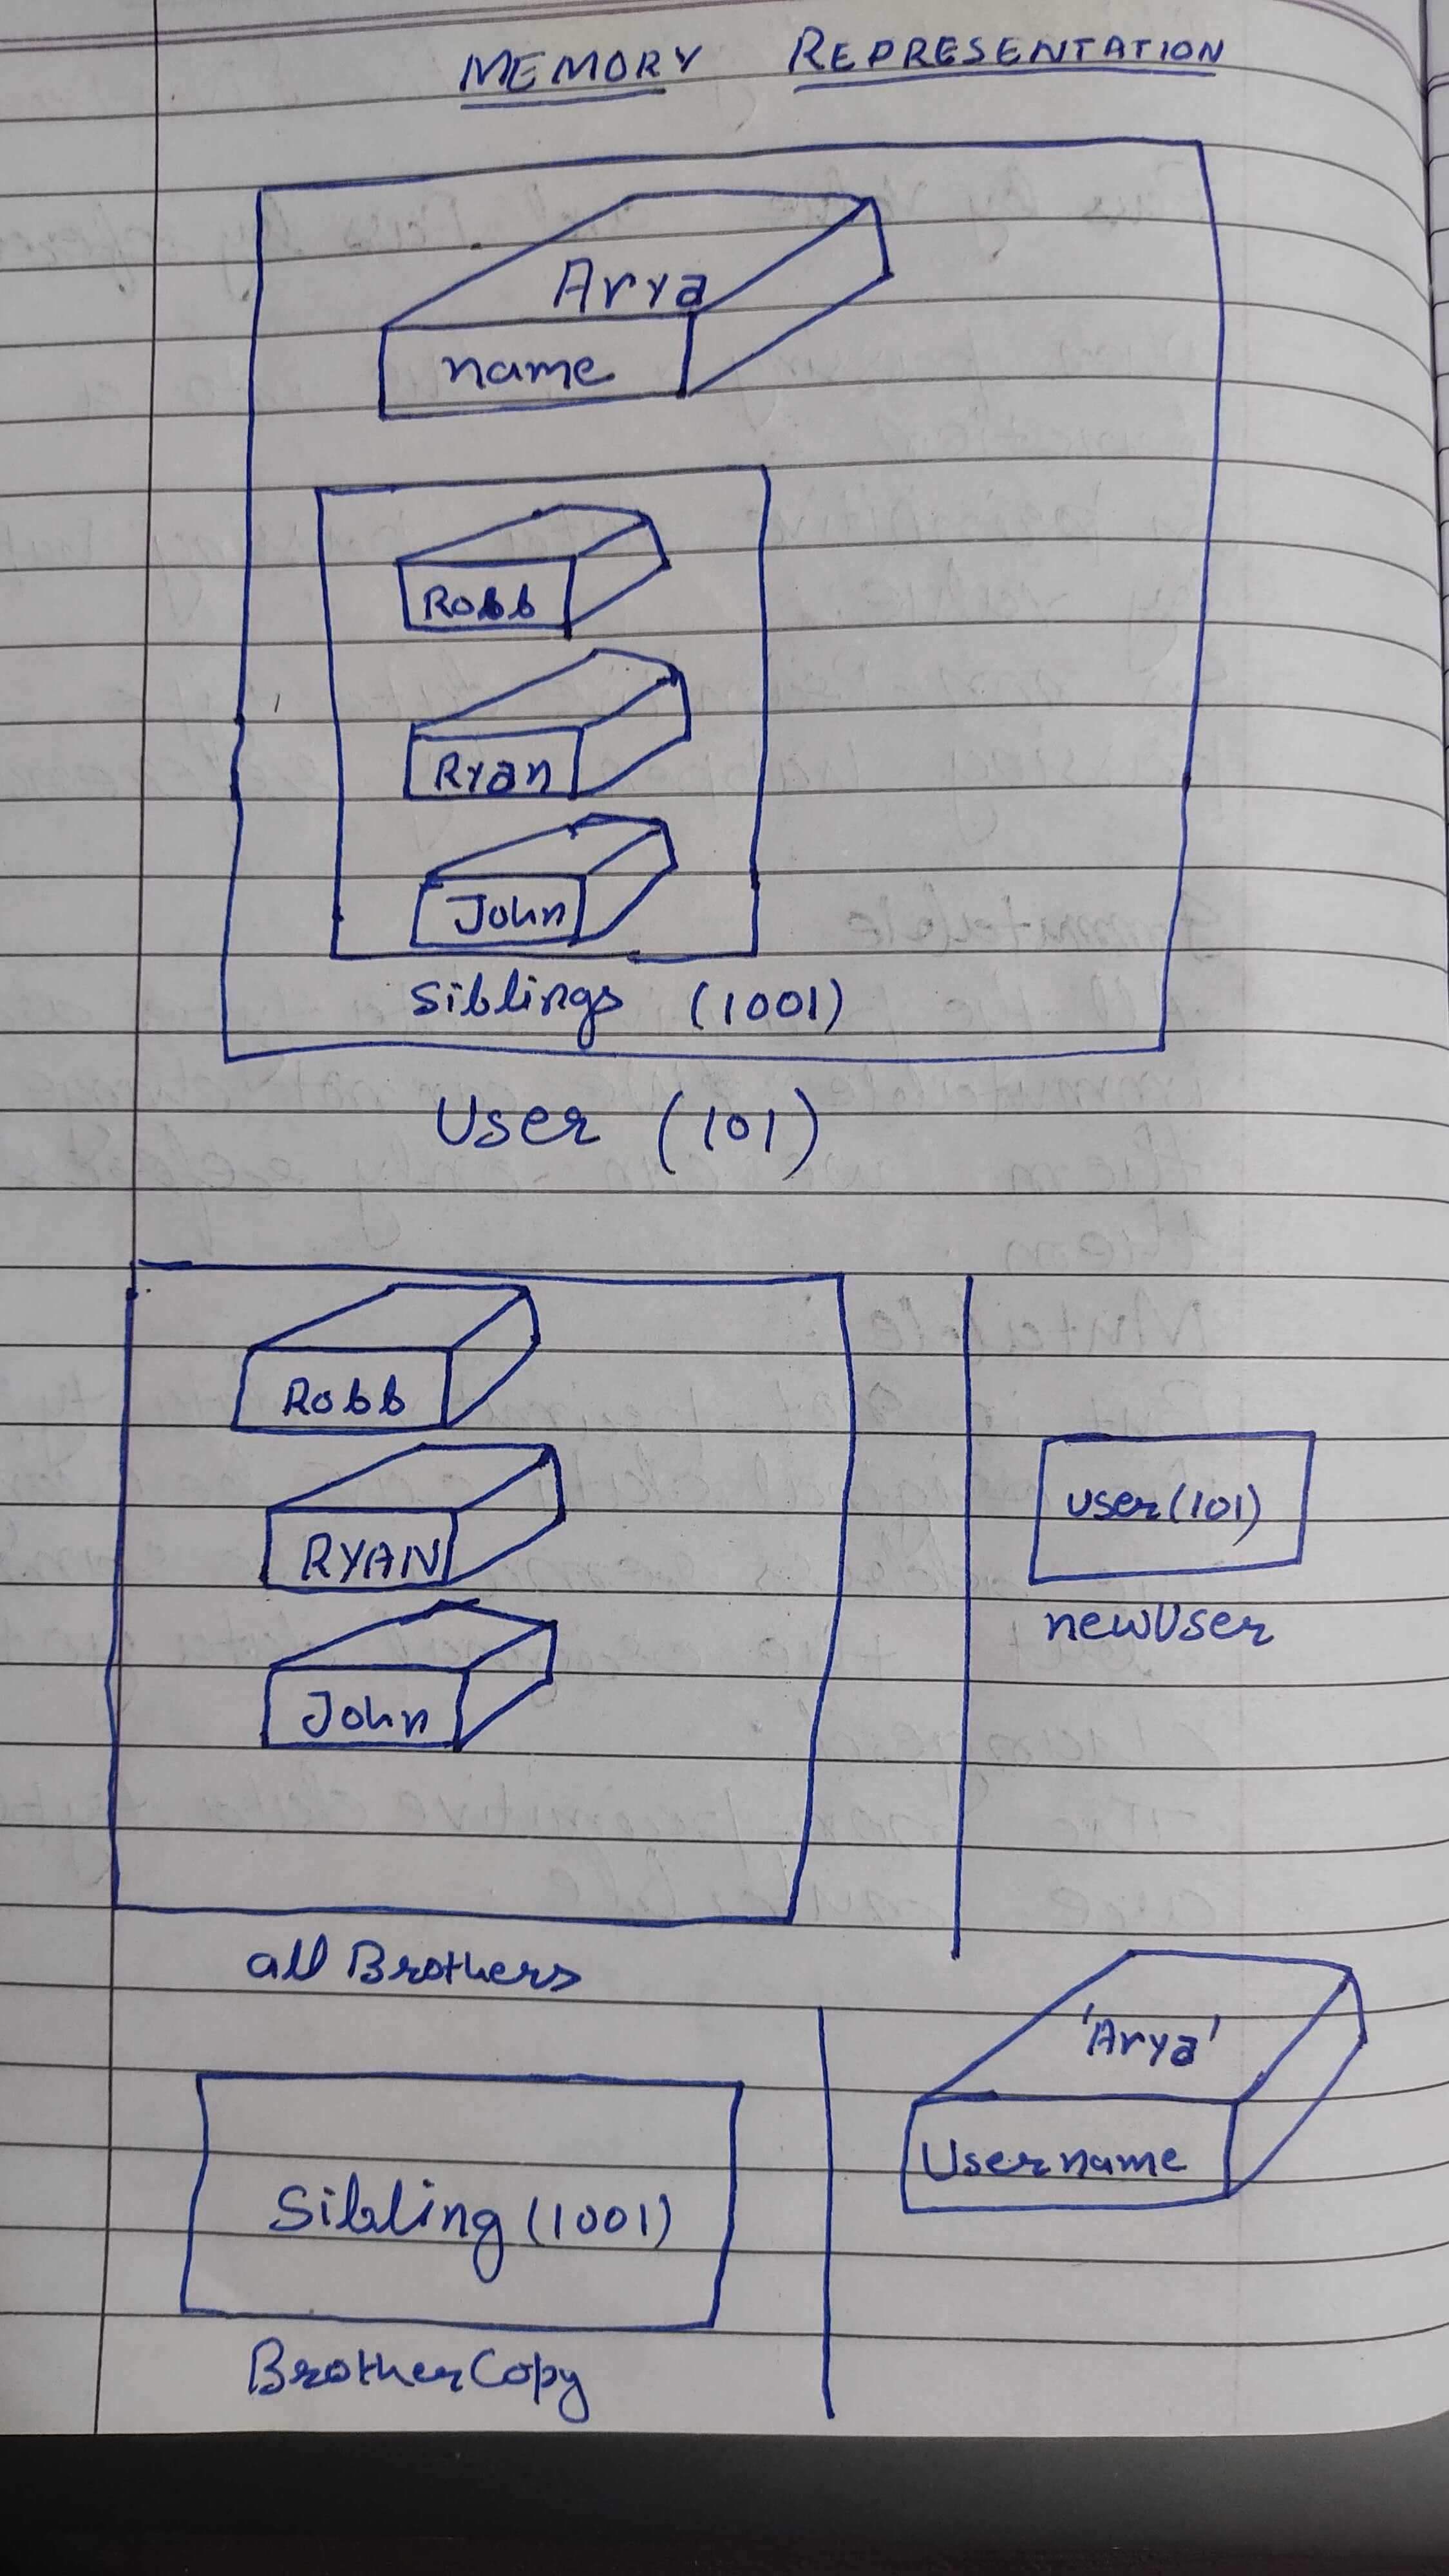 MEMORY REPRESENTATION
Arya
name
Robb
Ryan
John
Siblings (1001)
User (101)
Robb
RYAN
John
all Brothers
user (101)
newUser
Sibling (1001)
BrotherCopy
'Arya'
Username